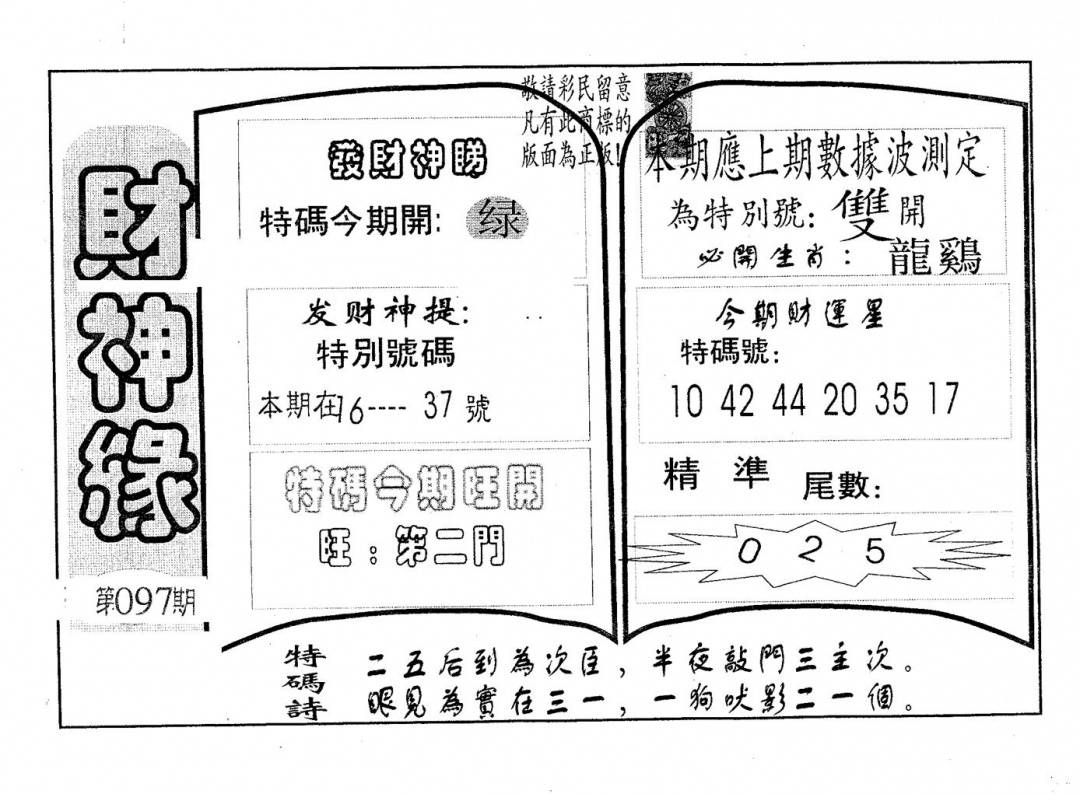 財神緣
第097期
敬請彩民留意
凡有此商標的
版面為正版!
發財神睇
特碼今期開: 绿
发财神提:
特別號碼
本期在16---- 37 號
特碼今期旺開
旺:第二門
本期應上期數據波測定
為特別號: 雙 開
必開生肖: 龍鷄
今期財運星
特碼號:
10 42 44 20 35 17
精準 尾數:
0 2 5
特碼詩
二五后到為次臣，半夜敲門三主次。
眼見為實在三一，一狗吠影二一個。